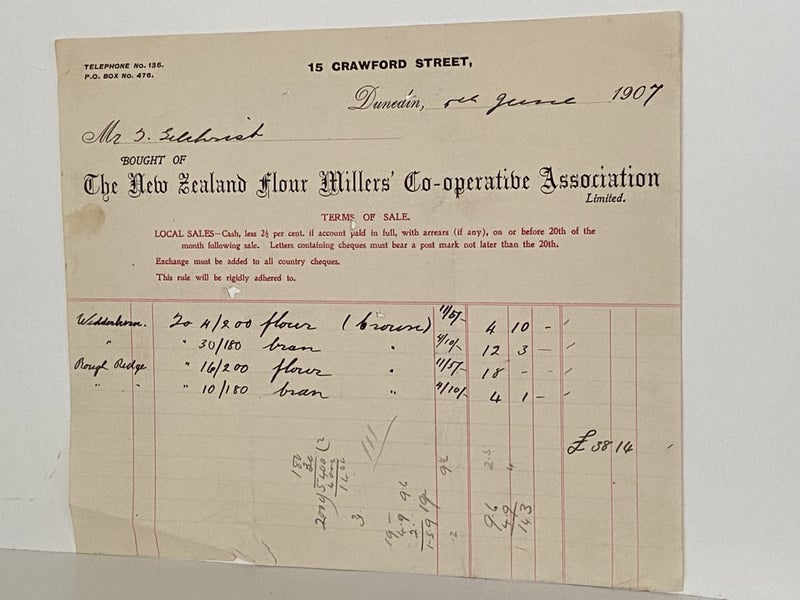 TELEPHONE No. 135.
P.O. BOX No. 476.
15 CRAWFORD STREET,
Dunedin, 5th June 1907
Mr T. Gilchrist
BOUGHT OF
The New Zealand Flour Millers' Co-operative Association
Limited.
TERMS OF SALE.
LOCAL SALES—Cash, less 2½ per cent. if account paid in full, with arrears (if any), on or before 20th of the
month following sale. Letters containing cheques must bear a post mark not later than the 20th.
Exchange must be added to all country cheques.
This rule will be rigidly adhered to.
Wedderburn. To 4/200 flour (brown) 4 10 -
" " 30/180 bran " 4/10/- 12 3 -
Rough Ridge " 16/200 flour " 11/5/- 18 - -
" " " 10/180 bran " 4/10/- 4 1 -
£38 14
96
49
143